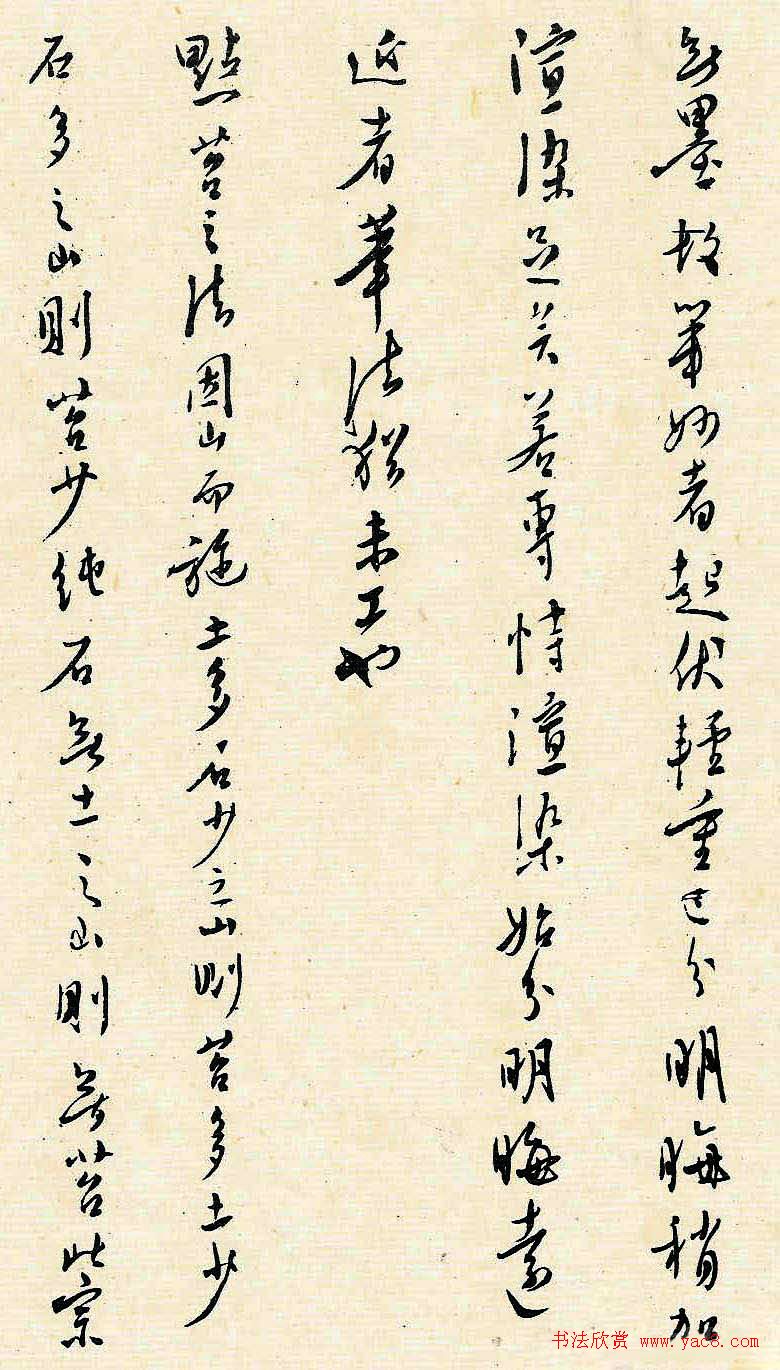 無墨故筆妙者起伏輕重已分明晦稍加
渲染足矣若專恃渲染始分明晦遠
近者筆法猶未工也
點苔之法因山而施土多石少之山則苔多土少
石多之山則苔少純石無土之山則無苔此宗
书法欣赏 www.yac8.com